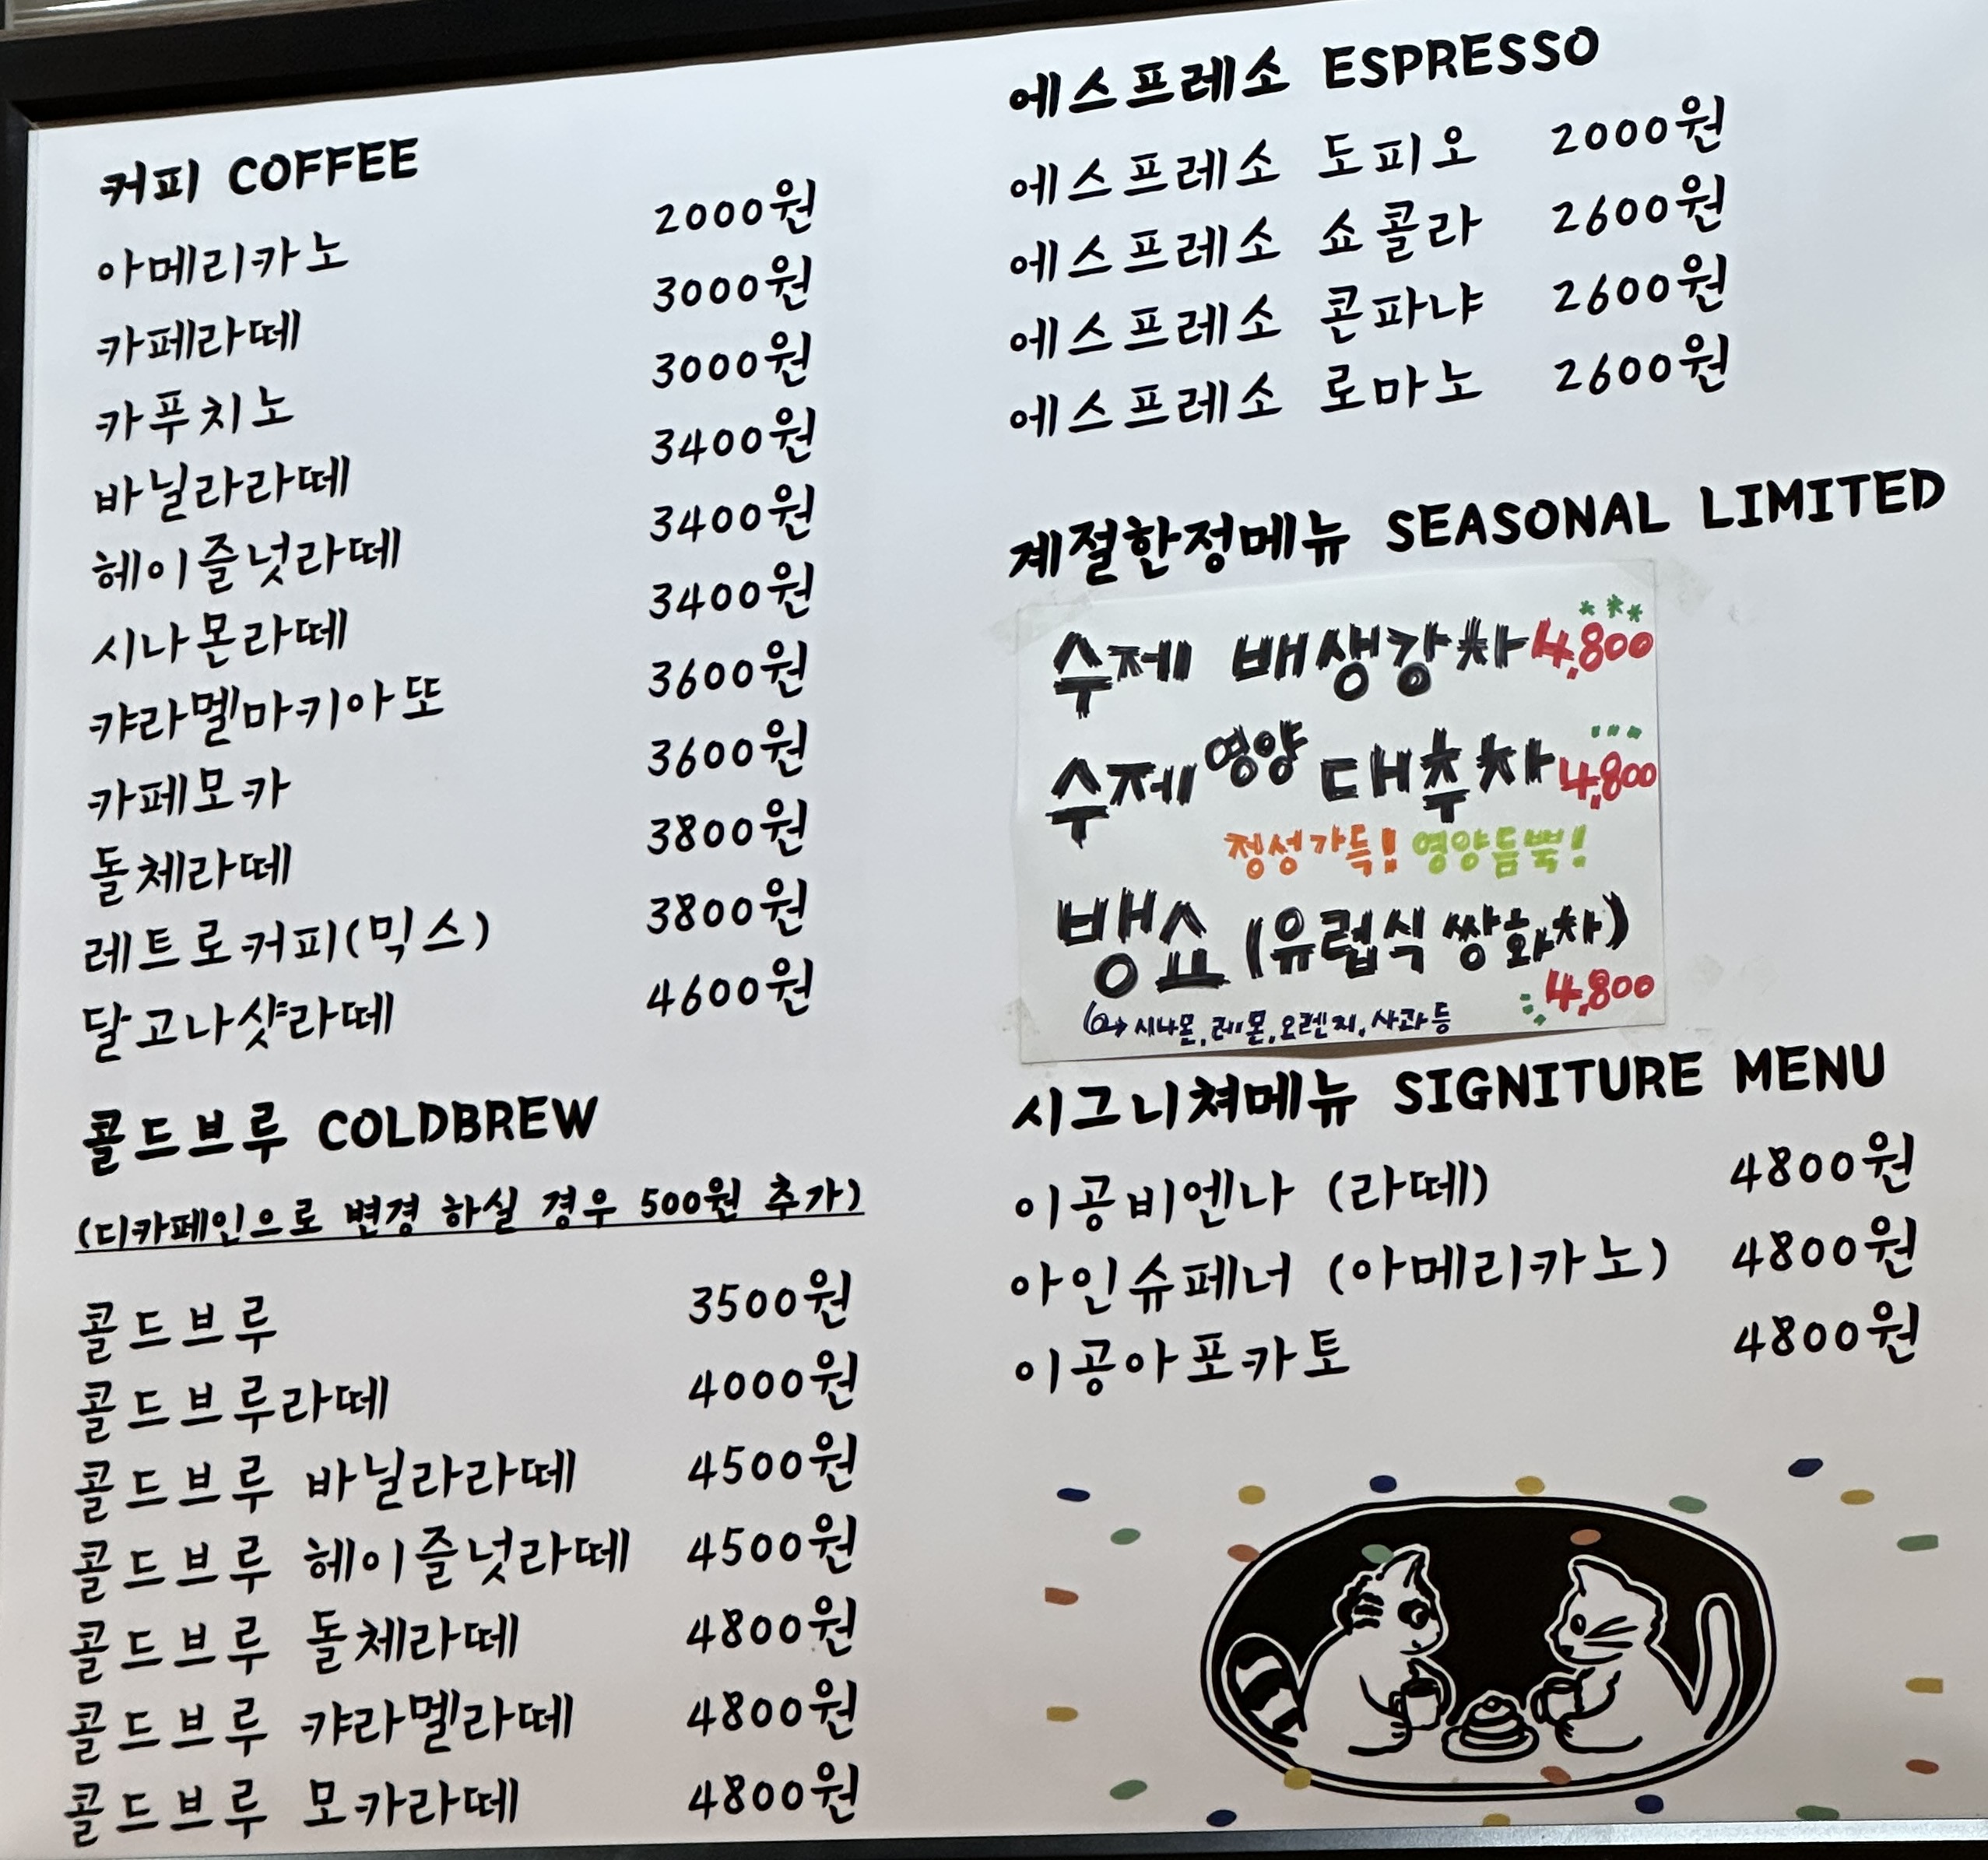 커피 COFFEE
아메리카노 2000원
카페라떼 3000원
카푸치노 3000원
바닐라라떼 3400원
헤이즐넛라떼 3400원
시나몬라떼 3400원
캬라멜마키아또 3600원
카페모카 3600원
돌체라떼 3800원
레트로커피(믹스) 3800원
달고나샷라떼 4600원
콜드브루 COLDBREW
(디카페인으로 변경 하실 경우 500원 추가)
콜드브루 3500원
콜드브루라떼 4000원
콜드브루 바닐라라떼 4500원
콜드브루 헤이즐넛라떼 4500원
콜드브루 돌체라떼 4800원
콜드브루 캬라멜라떼 4800원
콜드브루 모카라떼 4800원
에스프레소 ESPRESSO
에스프레소 도피오 2000원
에스프레소 쇼콜라 2600원
에스프레소 콘파냐 2600원
에스프레소 로마노 2600원
계절한정메뉴 SEASONAL LIMITED
수제 배생강차 4,800
수제 영양 대추차 4,800
정성가득! 영양듬뿍!
뱅쇼 (유럽식 쌍화차)
4,800
시나몬, 레몬, 오렌지, 사과 등
시그니쳐메뉴 SIGNITURE MENU
이공비엔나 (라떼) 4800원
아인슈페너 (아메리카노) 4800원
이공아포카토 4800원